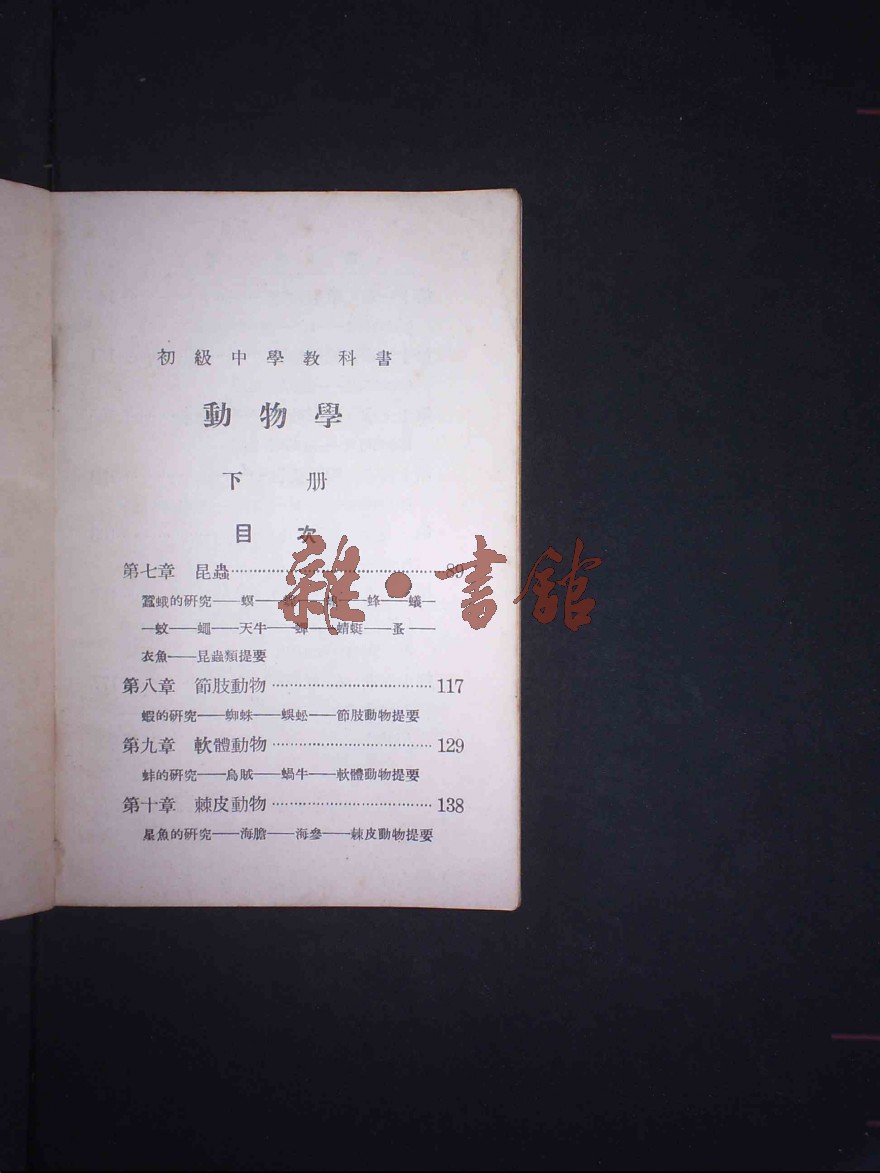 初級中學教科書
動物學
下册
目次
第七章 昆蟲……………………………89
蠶蛾的研究——螟——蜂——蟻—
—蚊——蠅——天牛————蜻蜓——蚤——
衣魚——昆蟲類提要
第八章 節肢動物……………………………117
蝦的研究——蜘蛛——蜈蚣——節肢動物提要
第九章 軟體動物……………………………129
蚌的研究——烏賊——蝸牛——軟體動物提要
第十章 棘皮動物……………………………138
星魚的研究——海膽——海參——棘皮動物提要
雜·書館